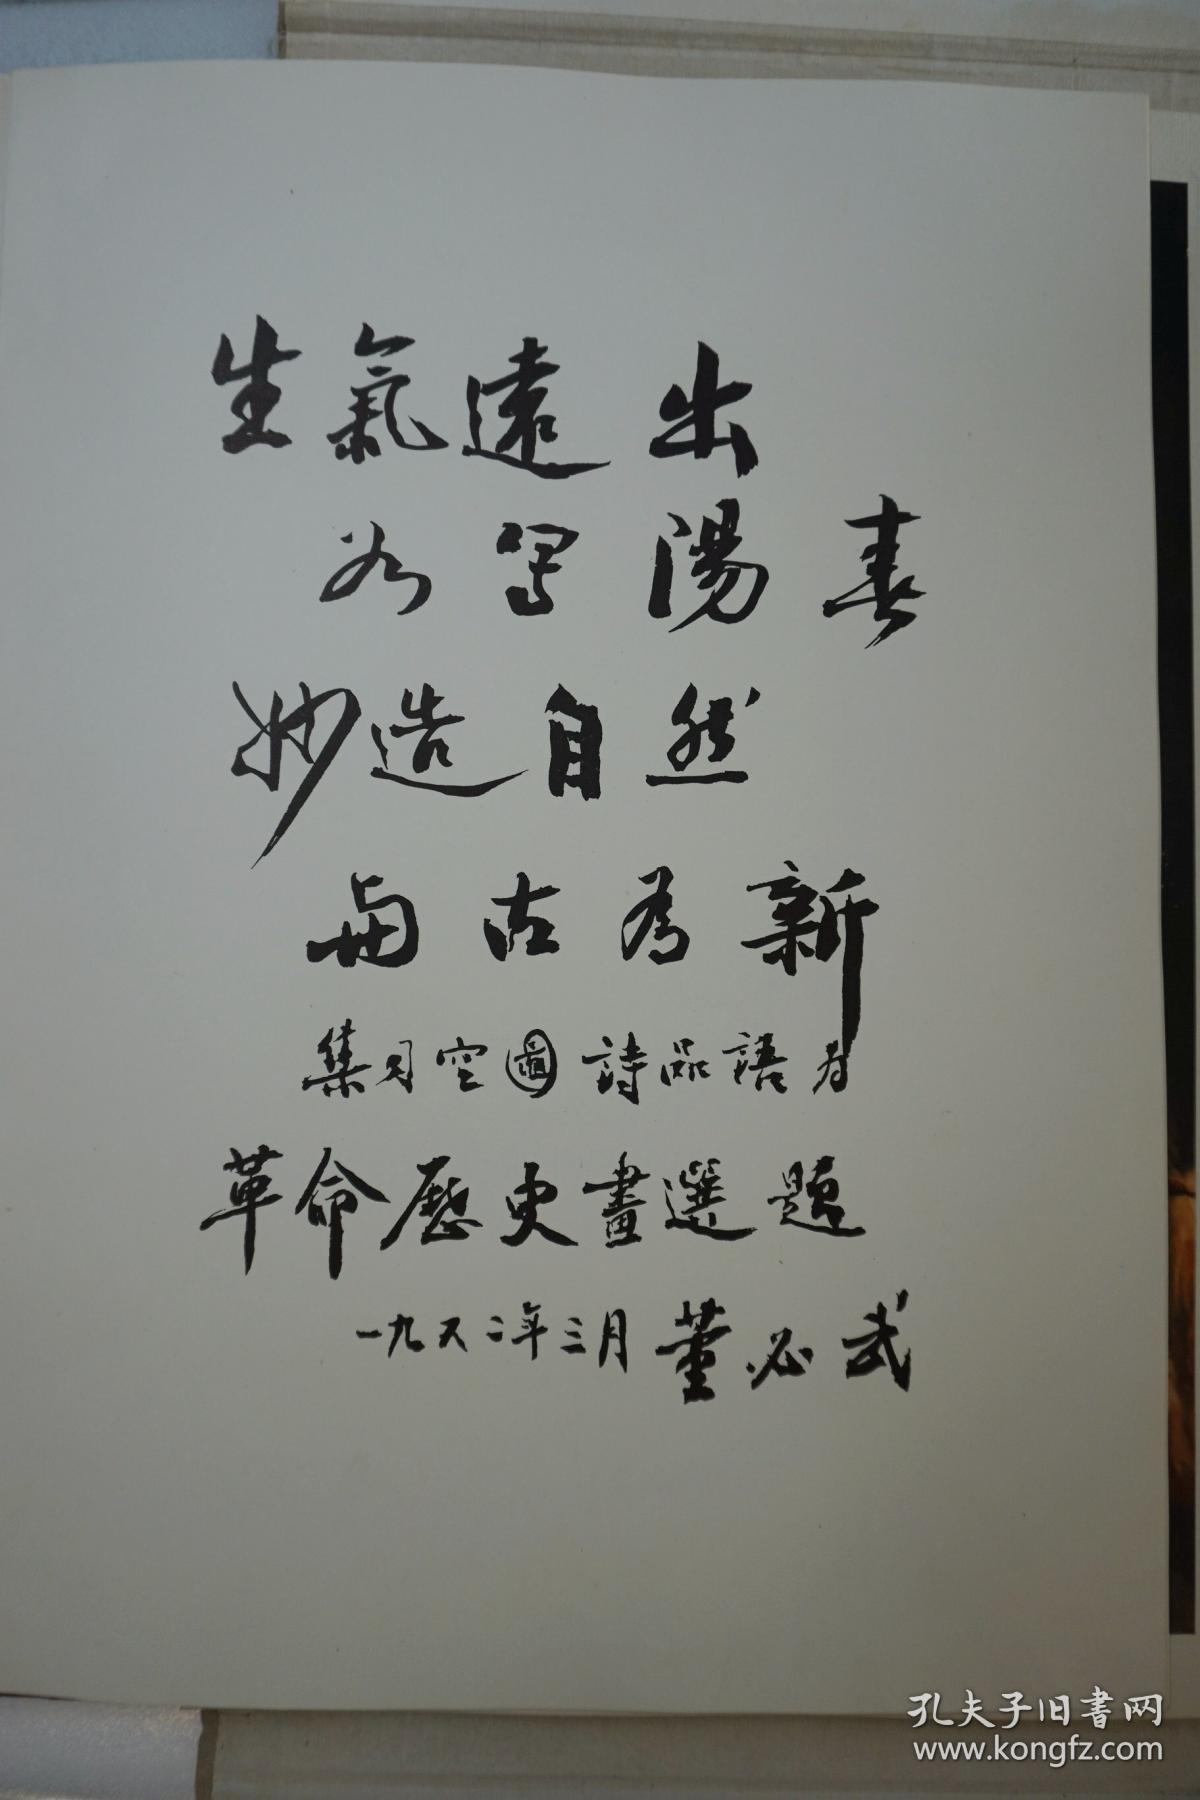 生氣遠出
如写陽春
妙造自然
與古為新
集司空圖詩品語為
革命歷史畫選題
一九六二年三月 董必武
孔夫子旧書网
www.kongfz.com